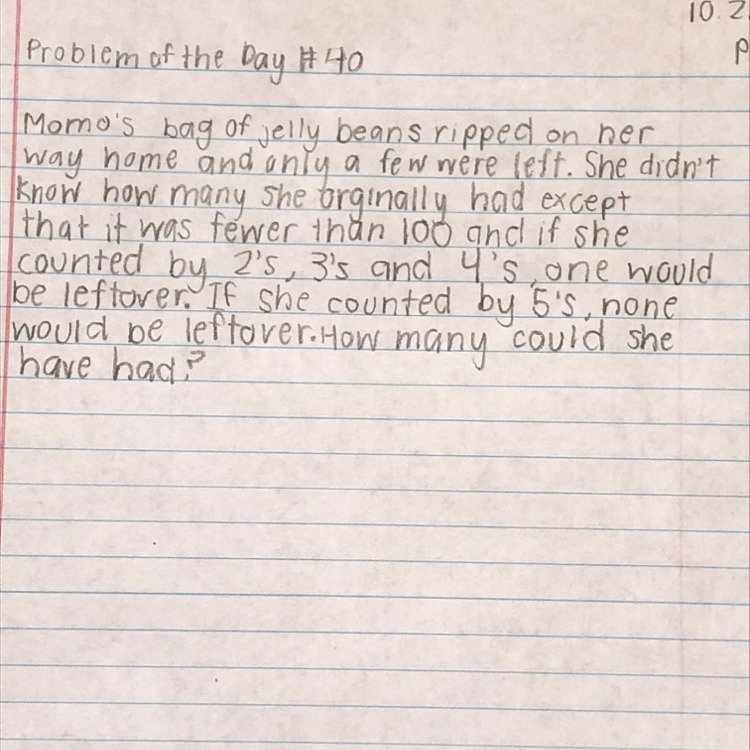 10.2
Problem of the Day #40
P
Momo's bag of jelly beans ripped on her
way home and only a few were left. She didn't
know how many she orginally had except
that it was fewer than 100 and if she
counted by 2's, 3's and 4's, one would
be leftover. If she counted by 5's, none
would be leftover. How many could she
have had?